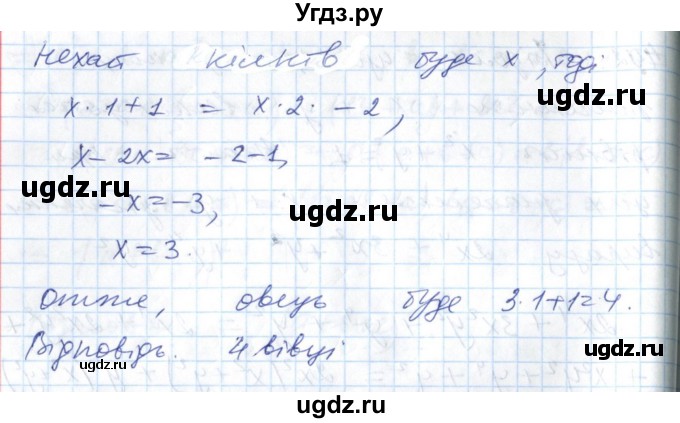 Угдз.ру
Нехай кілків буде x, тоді
x · 1 + 1 = x · 2 · - 2,
x - 2x = - 2 - 1,
- x = - 3,
x = 3.
Отже, овець буде 3 · 1 + 1 = 4.
Відповідь. 4 вівці
ugdz.ru
ugdz.ru
ugdz.ru
ugdz.ru
ugdz.ru
ugdz.ru
ugdz.ru